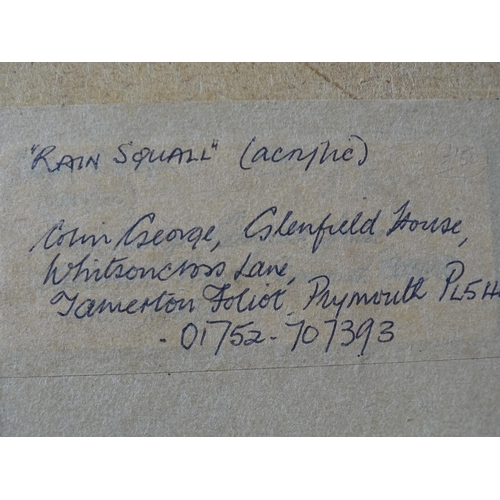 "RAIN SQUALL" (acrylic)
Colin George, Glenfield House,
Whitsoncross Lane,
Tamerton Foliot, Plymouth PL5
. 01752-707393